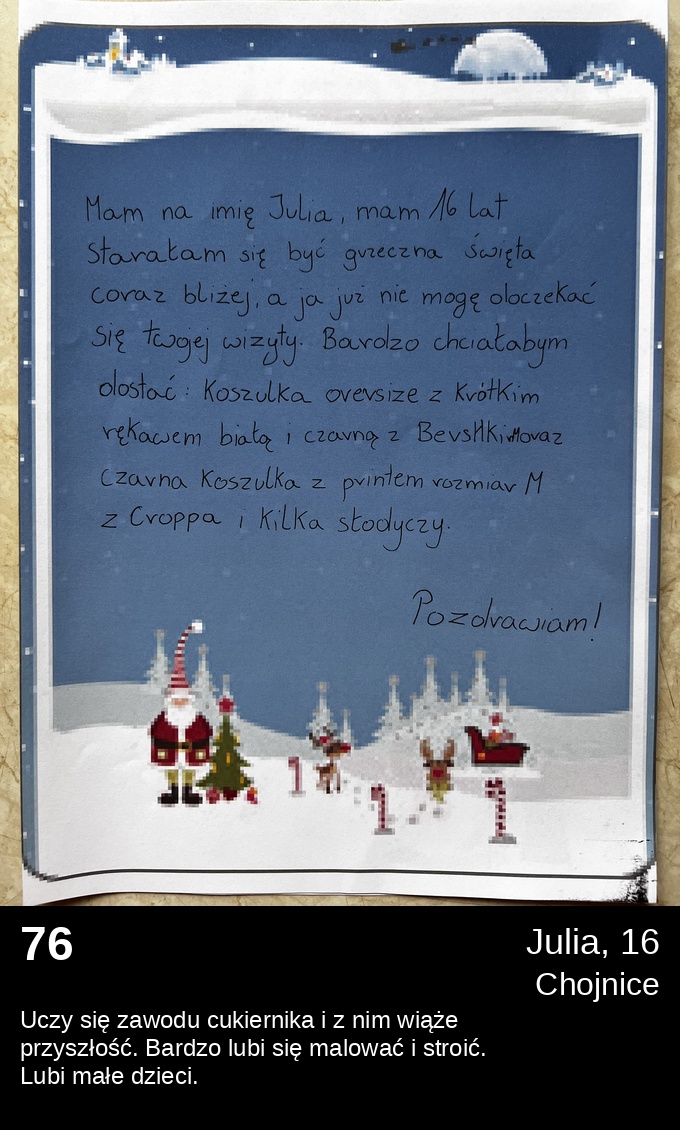 Mam na imię Julia, mam 16 lat
Starałam się być grzeczna święta
coraz bliżej, a ja już nie mogę doczekać
się twojej wizyty. Bardzo chciałabym
dostać: Koszulka oversize z krótkim
rękawem białą i czarną z Bershki oraz
czarna koszulka z printem rozmiar M
z Croppa i kilka słodyczy.
Pozdrawiam!
76
Julia, 16
Chojnice
Uczy się zawodu cukiernika i z nim wiąże
przyszłość. Bardzo lubi się malować i stroić.
Lubi małe dzieci.